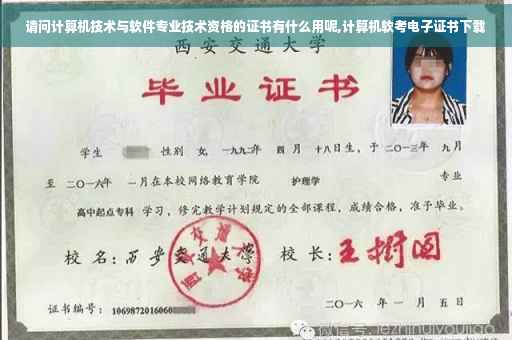 请问计算机技术与软件专业技术资格的证书有什么用呢,计算机软考电子证书下载
西安交通大学
毕业证书
学生 性别 女, 一九九二年 四 月 十八日生, 于 二〇一三年 九月
至 二〇一六年 一月在本校网络教育学院 护理学 专业
高中起点专科 学习, 修完教学计划规定的全部课程, 成绩合格, 准予毕业。
校 名: 西安交通大学 校 长: 王树国
西安交通大学
二〇一六 年 一 月 五 日
证书编号: 1069872016060
微信号: jezhihuiyoujiao